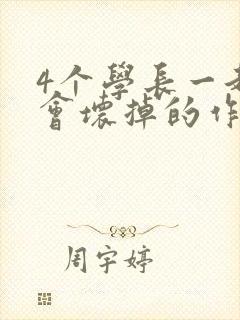 4个學長一起
會壞掉的作
周宇婷